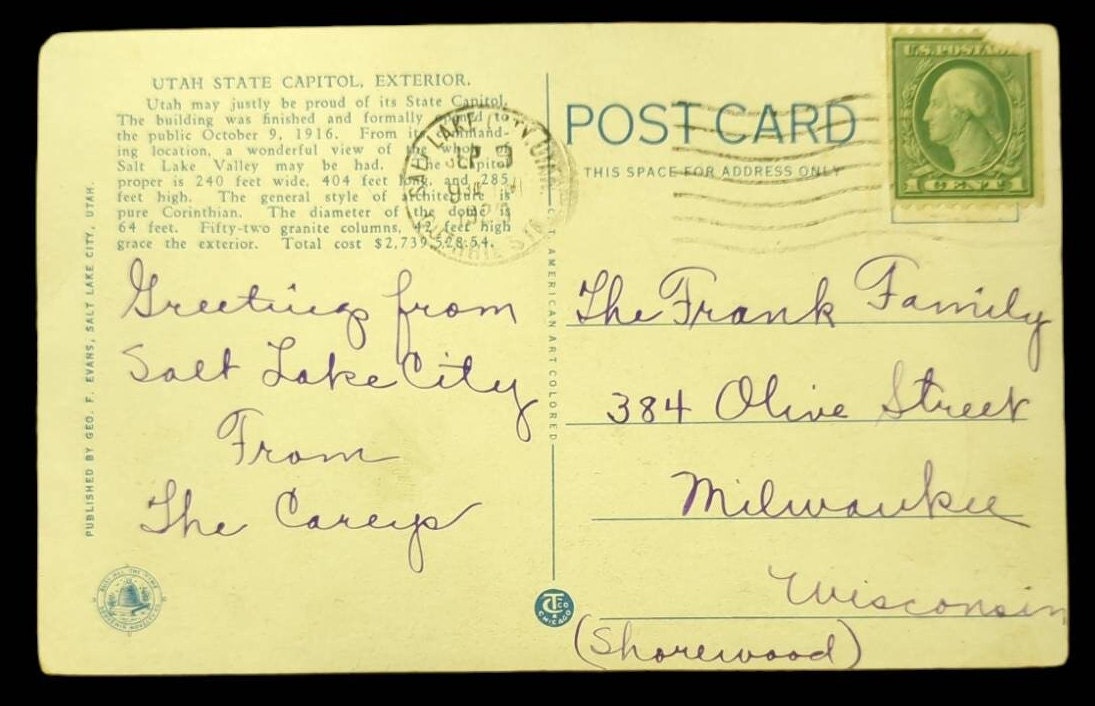 UTAH STATE CAPITOL, EXTERIOR.
Utah may justly be proud of its State Capitol.
The building was finished and formally opened to
the public October 9, 1916. From its command-
ing location, a wonderful view of the whole of
Salt Lake Valley may be had. The Capitol
proper is 240 feet wide, 404 feet long, and 285
feet high. The general style of architecture is
pure Corinthian. The diameter of the dome is
64 feet. Fifty-two granite columns, 42 feet high
grace the exterior. Total cost $2,739,528.54.
Greetings from
Salt Lake City
From
The Careys
PUBLISHED BY GEO. F. EVANS, SALT LAKE CITY, UTAH.
SALT LAKE CITY, UTAH
SEP 3
C.T. AMERICAN ART COLORED
CT CO
CHICAGO
POST CARD
THIS SPACE FOR ADDRESS ONLY
U.S. POSTAGE
1 CENT 1
The Frank Family
384 Olive Street
Milwaukee
Wisconsin
(Shorewood)